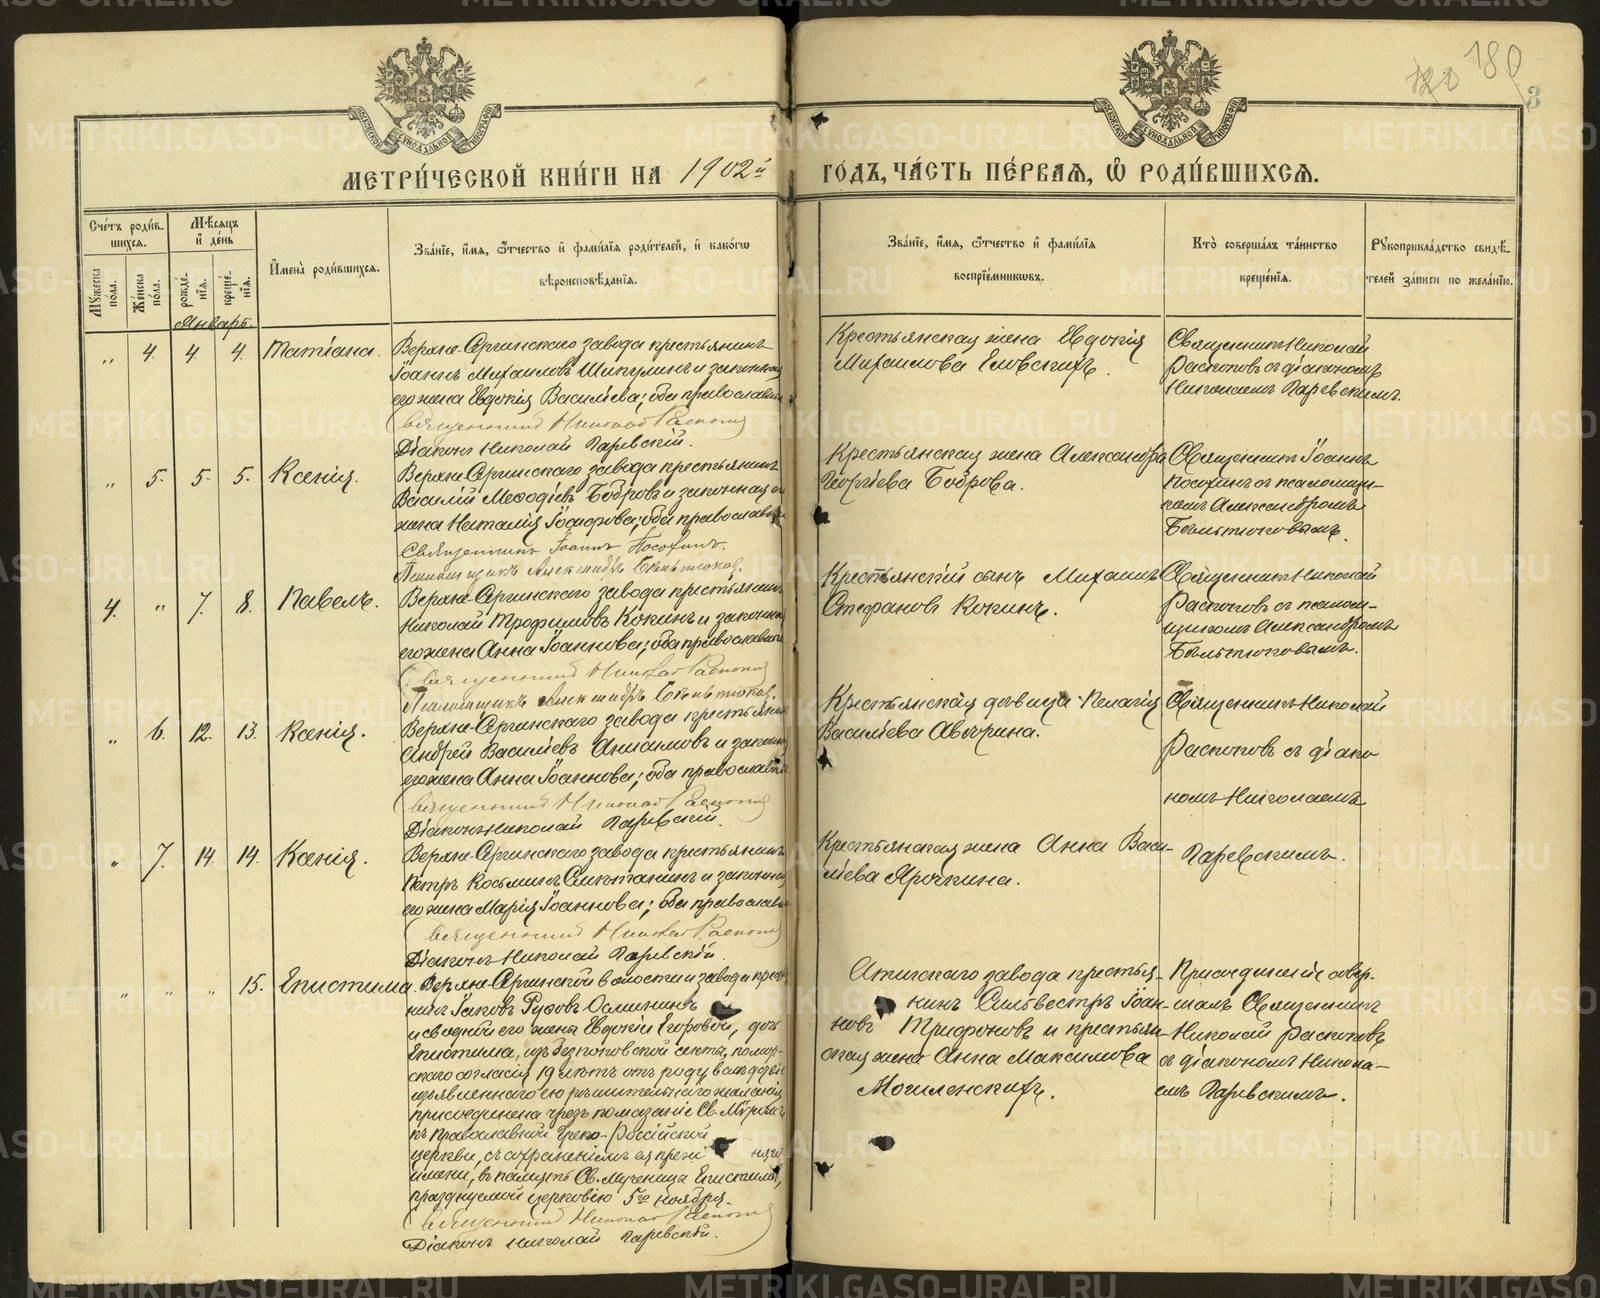 180
3
МЕТРИ́ЧЕСКОЙ КНИ́ГИ НА 1902й ГОДЪ, ЧА́СТЬ ПЕ́РВАѦ, Ѡ҆ РОДИ́ВШИХСѦ.
Сче́тъ роди́в-
шихсѧ.
Мꙋжеска по́ла.
Же́нска по́ла.
Мѣ́сѧцъ и҆ де́нь
рожде́-нїѧ.
креще́-нїѧ.
И҆мена̀ роди́вшихсѧ.
Зва́нїе, и҆́мѧ, ѻ҆́тчество и҆ фами́лїѧ роди́телей, и҆ како́гѡ
вѣроисповѣ́данїѧ.
Зва́нїе, и҆́мѧ, ѻ҆́тчество и҆ фами́лїѧ
воспрїе́мникѡвъ.
Кто̀ соверша́лъ та́инство
креще́нїѧ.
Рꙋкоприкла́дство свидѣ́-
телей за́писи по жела́нїю.
Январь.
„ 4. 4. 4. Татіана.
Верхне-Сергинскаго завода крестьянинъ
Іоаннъ Михаиловъ Шипулинъ и законная
его жена Евдокія Василіева; оба православны
Священникъ Николай Распоповъ
Діаконъ Николай Паревскій.
Крестьянская жена Евдокія
Михаилова Еловскихъ.
Священникъ Николай
Распоповъ съ діакономъ
Николаемъ Паревскимъ.
„ 5. 5. 5. Ксенія.
Верхне-Сергинскаго завода крестьянинъ
Василій Меѳодіевъ Бобровъ и законная его
жена Наталія Іосифова; оба православны
Священникъ Іоаннъ Посохинъ.
Псаломщикъ Александръ
Крестьянская жена Александра
Георгіева Боброва.
Священникъ Іоаннъ
Посохинъ съ псаломщи-
комъ Александромъ
4. „ 7. 8. Павелъ.
Верхне-Сергинскаго завода крестьянинъ
Николай Трофимовъ Кокинъ и законная
его жена Анна Іоаннова; оба православны
Священникъ Николай Распоповъ
Псаломщикъ Александръ
Крестьянскій сынъ Михаилъ
Стефановъ Кокинъ.
Священникъ Николай
Распоповъ съ псалом-
щикомъ Александромъ
„ 6. 12. 13. Ксенія.
Верхне-Сергинскаго завода крестьянинъ
Андрей Василіевъ Анисимовъ и законная
его жена Анна Іоаннова; оба православны
Священникъ Николай Распоповъ
Діаконъ Николай Паревскій.
Крестьянская дѣвица Пелагія
Василіева Аверина.
Священникъ Николай
Распоповъ съ діако
номъ Николаемъ
Паревскимъ.
„ 7. 14. 14. Ксенія.
Верхне-Сергинскаго завода крестьянинъ
Петръ Косьминъ и законная
его жена Марія Іоаннова; оба православны
Священникъ Николай Распоповъ
Діаконъ Николай Паревскій.
Крестьянская жена Анна Васи-
ліева Ярочкина.
„ „ „ 15. Епистима.
Верхне-Сергинской волости и завода кресть
нинъ Іаковъ
и сводной его жены Евдокіи Егоровой, дочь
Епистима, изъ безпоповской секты, помор-
скаго согласія 19 лѣтъ отъ роду
изъявленнаго ею рѣшительнаго желанія
присоединена чрезъ помазаніе Св. Мѵромъ
къ Православной Греко-Россійской
церкви, съ сохраненіемъ ея преж няго
имени, въ память Св. Мученицы Епистимы,
празднуемой церковію 5го ноября.
Священникъ Николай Распоповъ
Діаконъ Николай Паревскій.
Атигскаго завода крестья-
нинъ Сильвестръ Іоан-
новъ Трифоновъ и крестьян
ская жена Анна Максимова
Могиленскихъ.
Присоединеніе совер-
шалъ Священникъ
Николай Распоповъ
съ діакономъ Никола-
емъ Паревскимъ.
METRIKI.GASO-URAL.RU